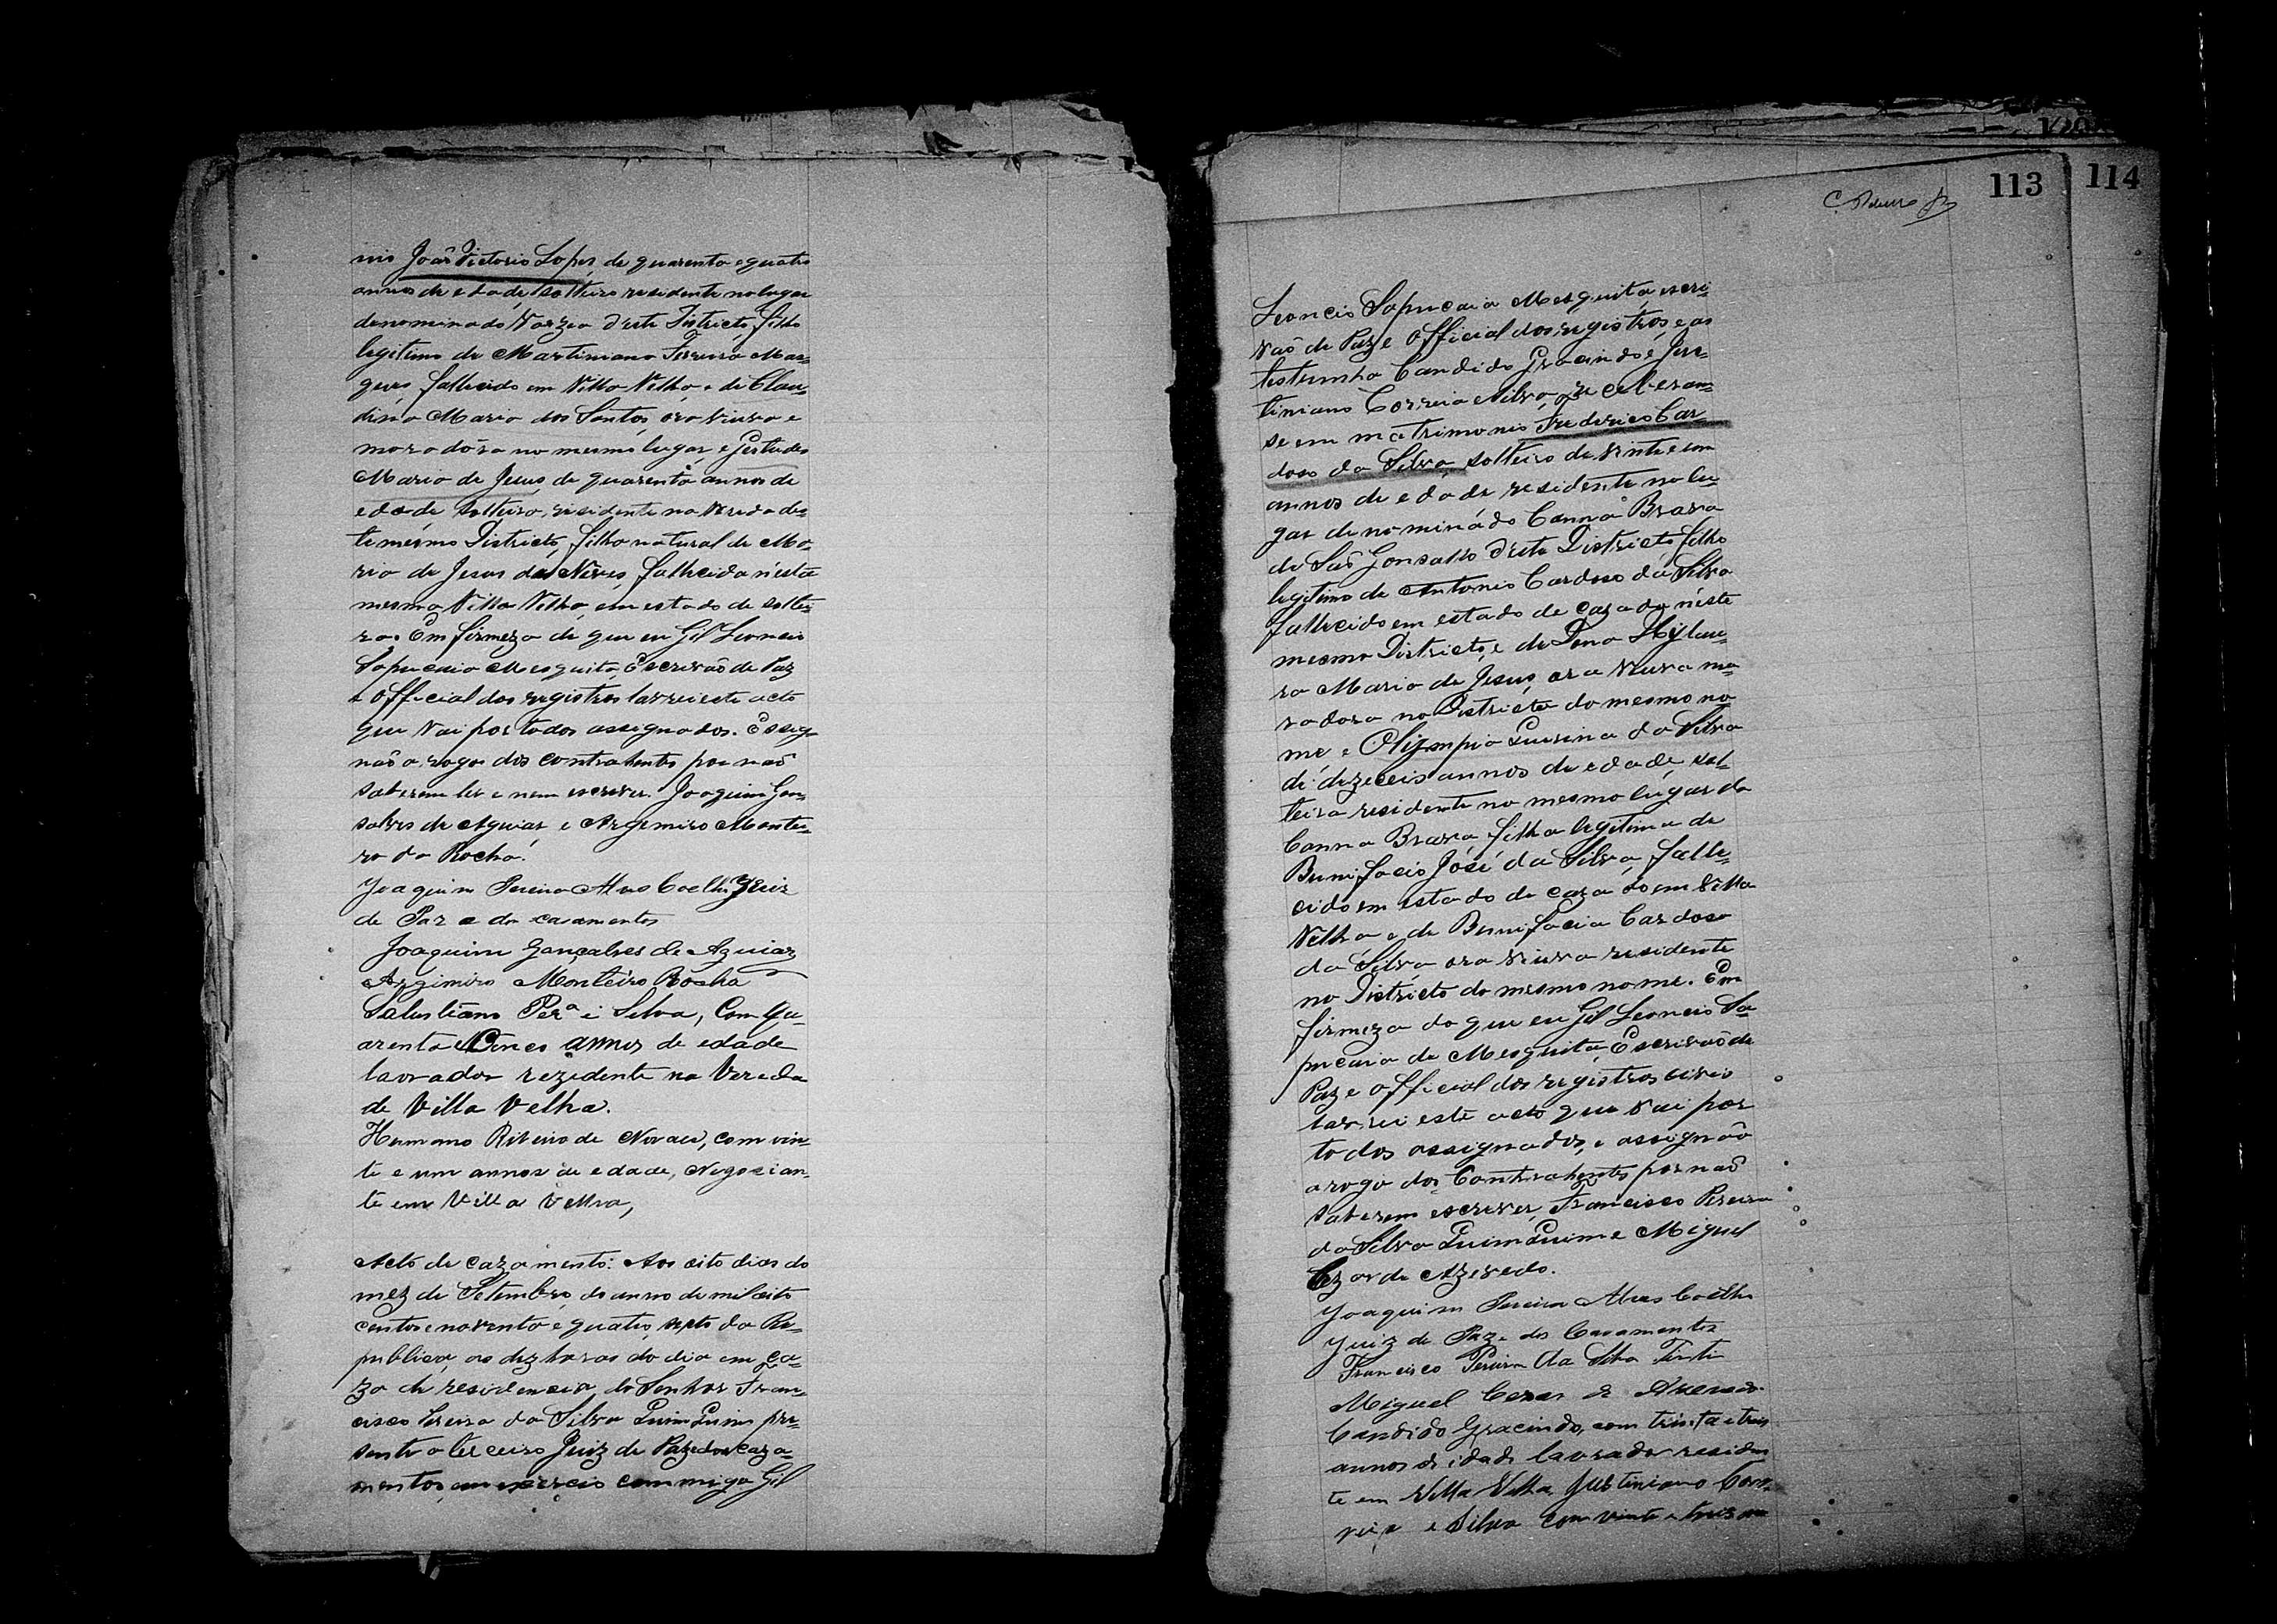 nio João Victorio Lopes, de quarenta e quatro
annos de edade, solteiro residente no lugar
denominado Varzea d'este Districto, filho
legitimo de Martiniano Ferreira Mar=
ques, fallecido em Villa Velha, e de Clau=
dina Maria dos Santos, ora viuva e
moradôra no mesmo lugar, e Gertudes
Maria de Jesus, de quarenta annos de
edade solteira, residente na Vereda des=
te mesmo Districto, filha natural de Ma=
ria de Jesus das Neves, fallecida n'esta
mesma Villa Velha, em estado de soltei=
ra. Em firmeza de que eu Gil Leoncio
Sapucaia Mesquita, Escrivaõ de Paz
e Official dos registros lavrei este acto
que vai por todos assignados. E assig=
naõ a rogo dos contrahentes por naõ
saberem ler e nem escrever. Joaquim Gon=
salves de Aguiar e Argemiro Montei=
ro da Rocha.
Joaquim Pereira Alves Coelho Juiz
de Paz e dos casamentos
Joaquim Gonçalves de Aguiar
Argimiro Monteiro Rocha
Salustiano Per.ª e Silva, com qu=
arenta e Cinco annos de edade
lavrador rezidente na Vereda
de Villa Velha.
Hermano Ribeiro de Novaes, com vin=
te e um annos de edade, Negocian=
te em Villa Velha,
Acto de cazamento: Aos oito dias do
mez de Setembro, do anno de mil oito
centos e noventa e quatro, septo da Re=
publica, as dez horas do dia em ca=
za de residencia do Senhor Fran=
cisco Pereira da Silva Quim Quim pre=
sente o terceiro Juiz de Paz e dos caza=
mentos, em exercicio commigo Gil
113
114
Leoncio Sapucaia Mesquita, escri=
vaõ de Paz e Official dos registros, e as
testumha Candido Gracindo e Jus=
tiniano Correia e Silva, receberam=
se em matrimonio Frederico Car=
doso da Silva, solteiro de vinte e um
annos de edade residente no lu=
gar denominádo Canna Brava
de Saõ Gonsallo d'este Districto filho
legitimo de Antonio Cardoso da Silva
fallecido em estado de cazado n'este
mesmo Districto, e de Dona Hylau=
ra Maria de Jesus, ora viuva mo=
radora no Districto do mesmo no=
me e Olympia Quirina da Silva
de dezeceis annos de edade, sol=
teira residente no mesmo lugar da
Canna Brava, filha legitima de
Bunifacio José da Silva, falle=
cido em estado de cazado em Villa
Velha e de Bunifacia Cardoso
da Silva ora viuva residente
no Districto do mesmo nome. Em
firmeza do que eu Gil Leoncio Sa=
pucaia de Mesquita, Escrivaõ de
Paz e Official dos registros civis
lavrei este acto que vai por
todos assignados, e assignão
a rogo dos Contrahentes por naõ
saberem escrever, Francisco Pereira
da Silva Quim Quim e Miguel
Cezar de Azevedo.
Joaquim Pereira Alves Coelho
Juiz de Paz e dos Casamentos
Francisco Pereira da Silva
Miguel Cezar de Azevedo.
Candido Gracindo, com trinta e tres
annos de idade lavrador residen
te em Villa Velha, Justiniano Corr=
reia e Silva com vinte e tres an